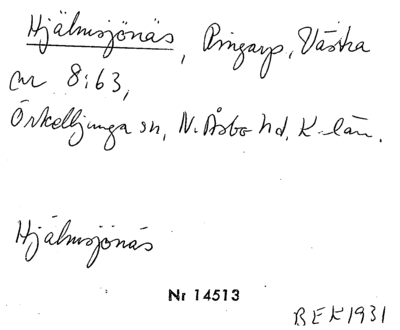 Hjälmsjönäs, Pingarp, Västra
nr 8:63,
Örkelljunga sn, N. Åsbo hd, K-län.
Hjälmsjönäs
Nr 14513
BEK 1931